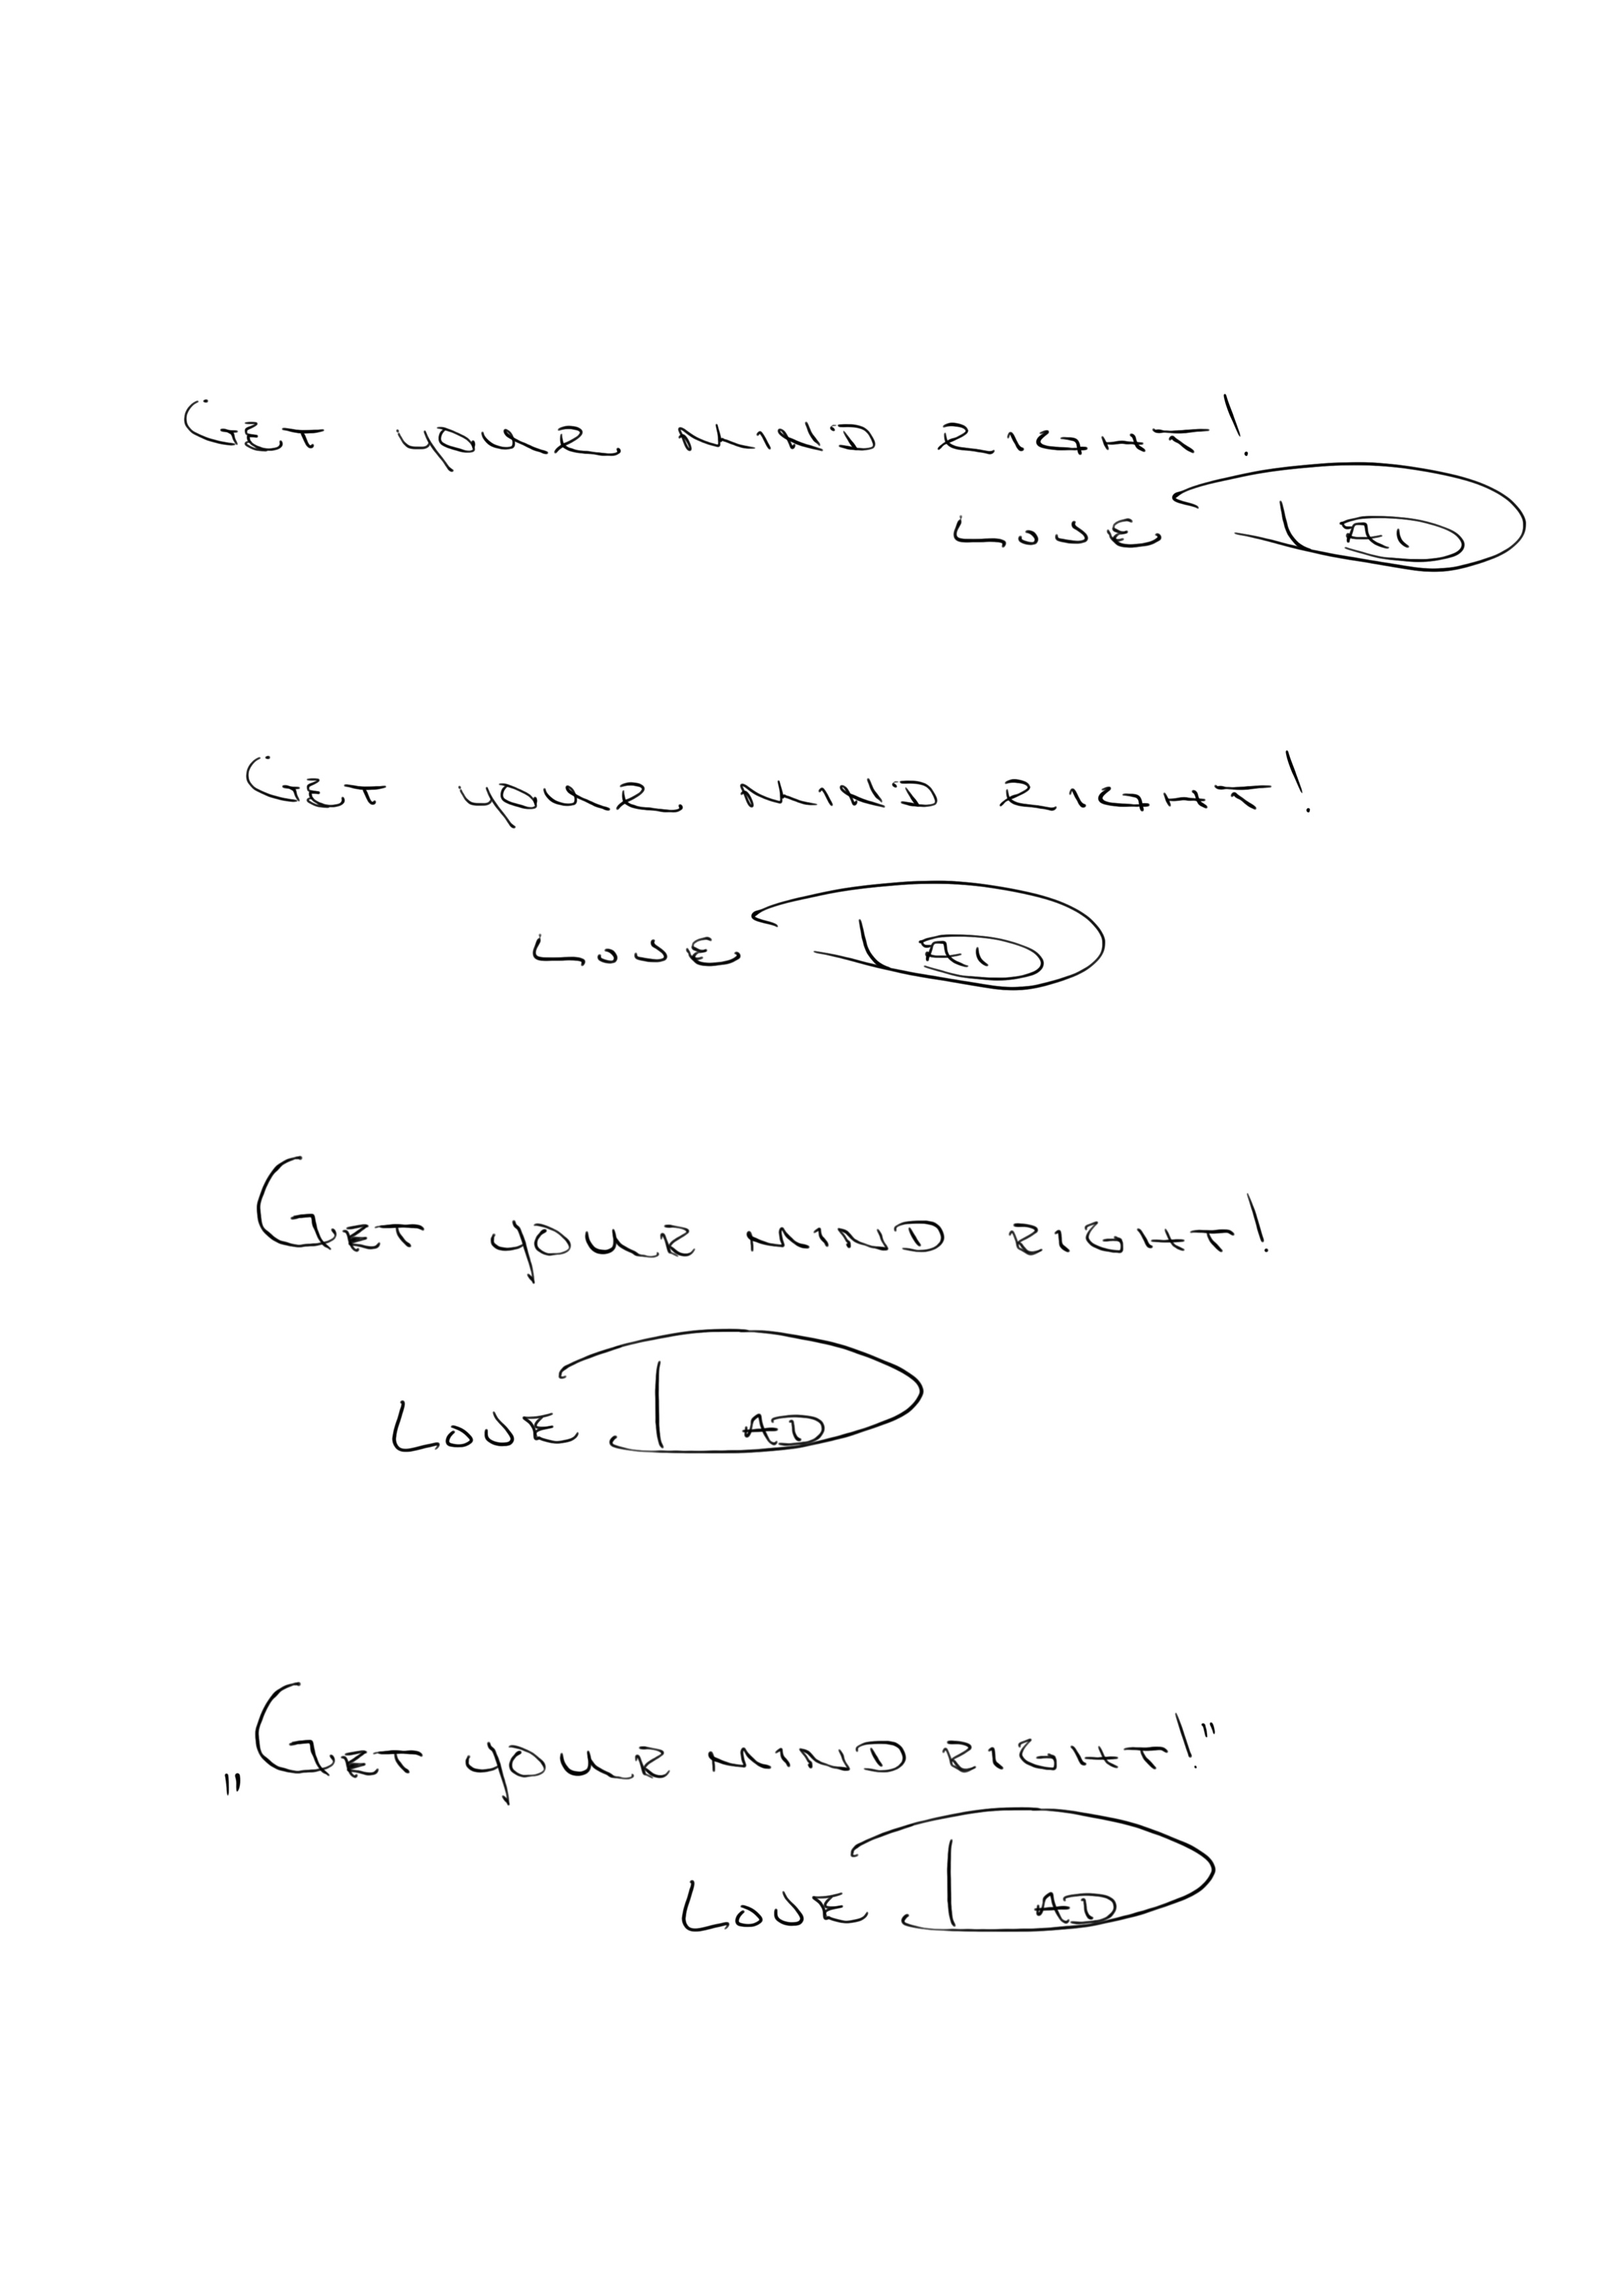 GET YOUR MIND RIGHT!
LOVE DAD
GET YOUR MIND RIGHT!
LOVE DAD
GET YOUR MIND RIGHT!
LOVE DAD
„GET YOUR MIND RIGHT!"
LOVE DAD